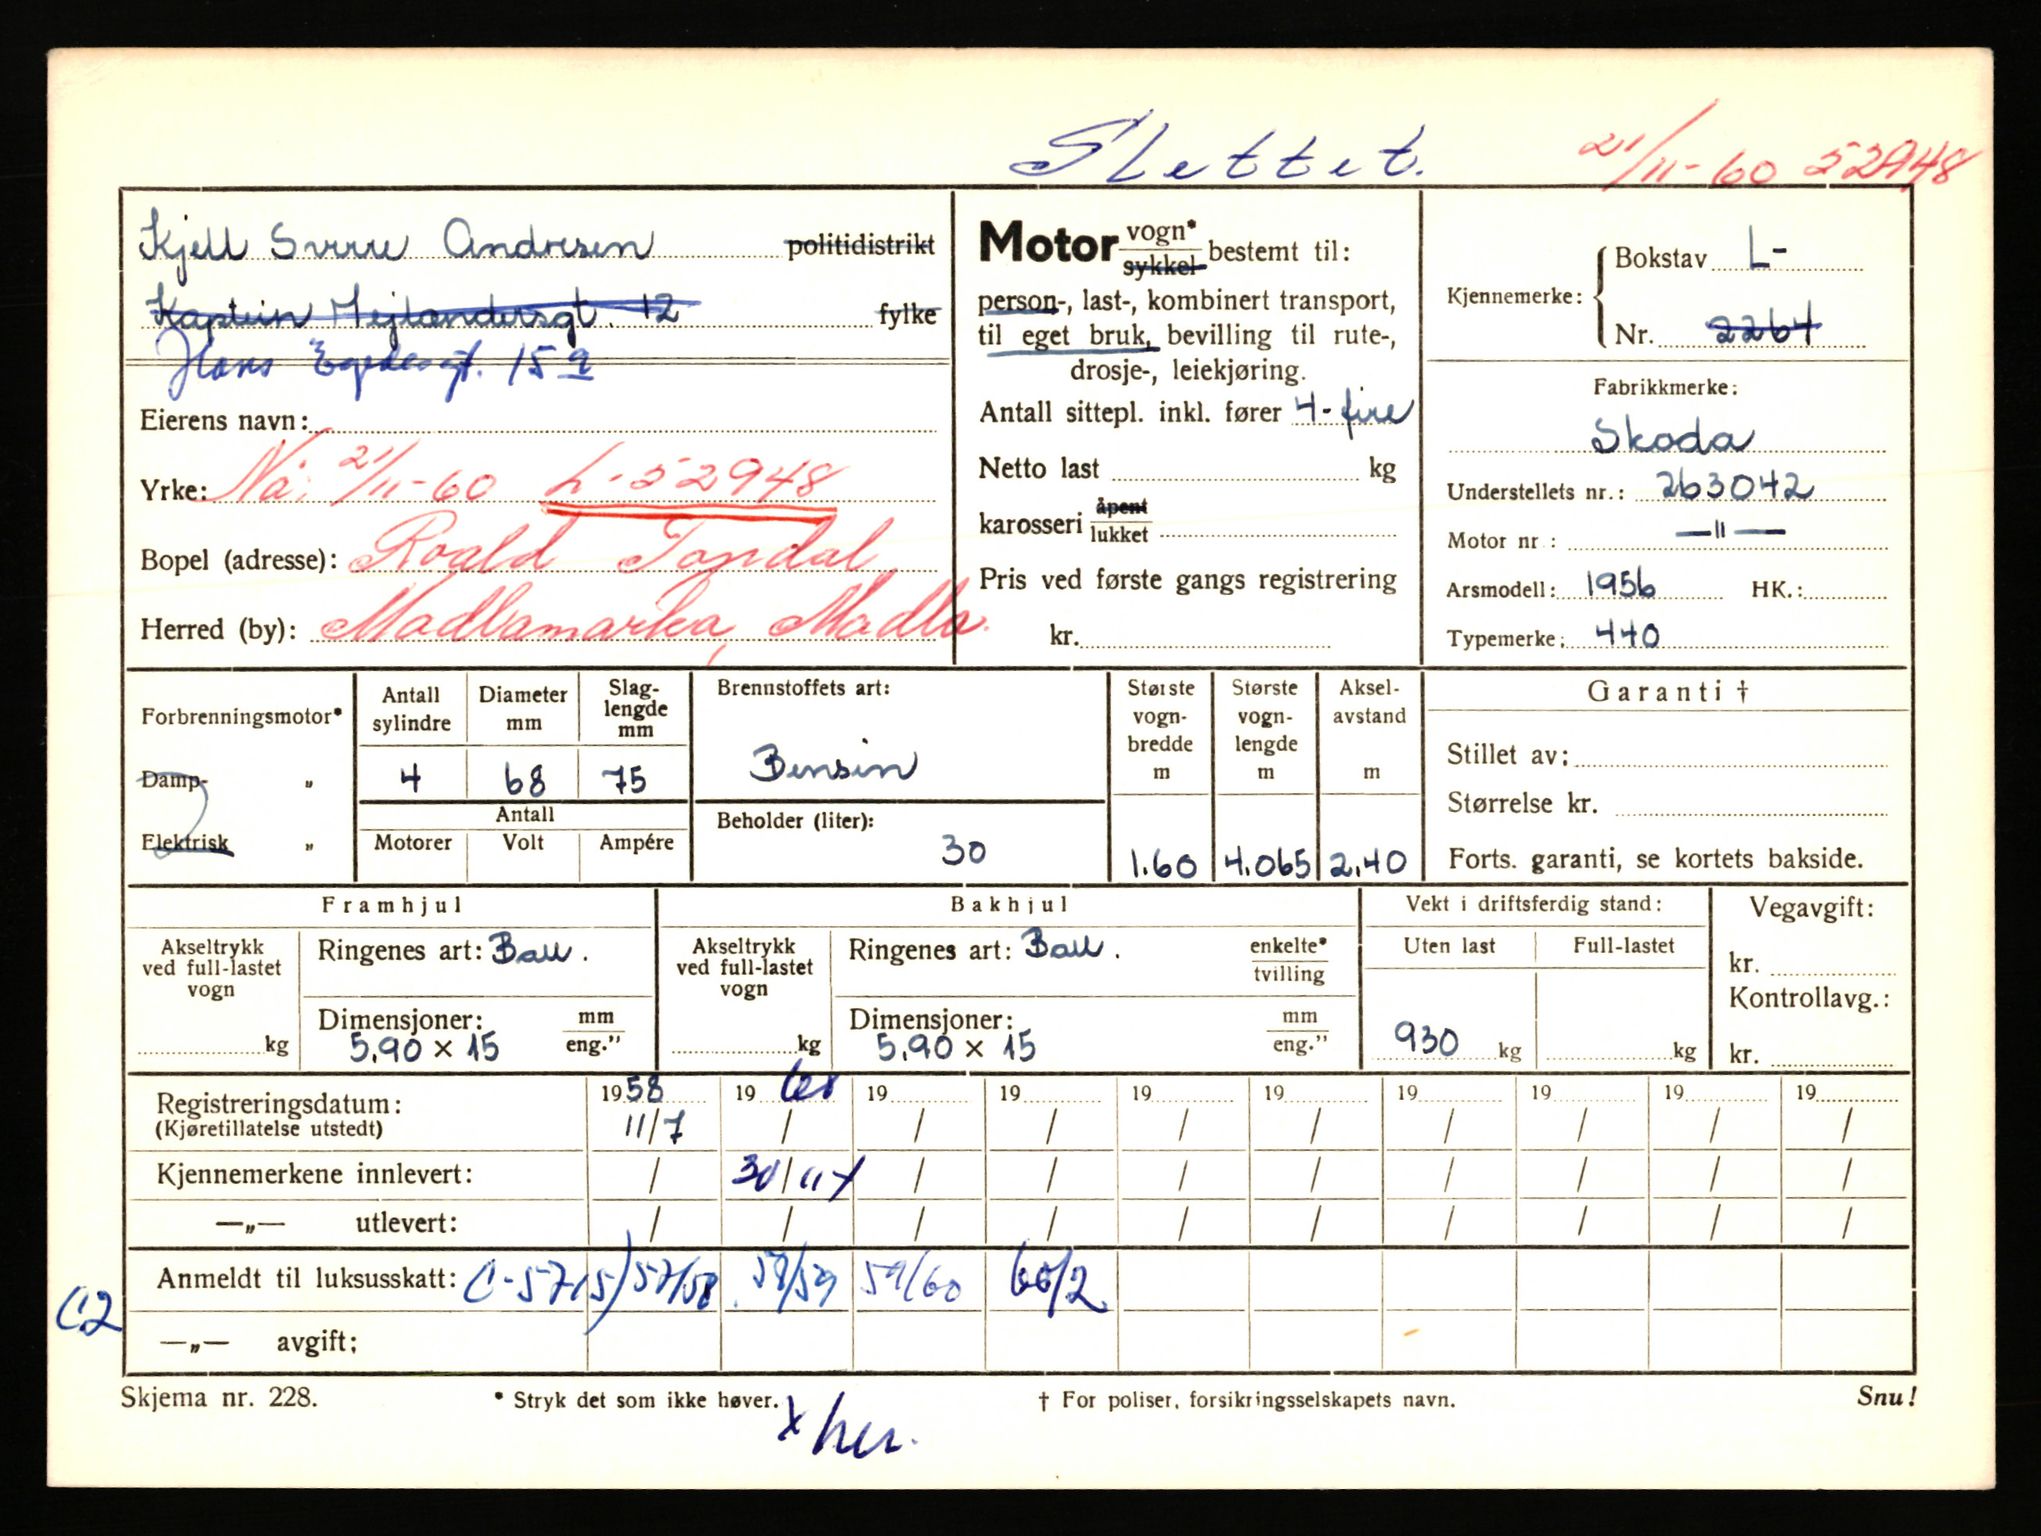 Slettet. 21/11-60 52948
Kjell Sverre Andresen politidistrikt
Kaptein Mejlændersgt. 12 fylke
Hans Egedesgt. 15 a
Eierens navn:
Yrke: Nå: 21/11-60 L-52948
Bopel (adresse): Roald Tandal
Herred (by): Madlamarka, Madla.
Motor vogn* sykkel bestemt til:
person-, last-, kombinert transport,
til eget bruk, bevilling til rute-,
drosje-, leiekjøring.
Antall sittepl. inkl. fører 4-fire
Netto last kg
karosseri åpent lukket
Pris ved første gangs registrering
kr.
Kjennemerke: Bokstav L-
Nr. 2264
Fabrikkmerke:
Skoda
Understellets nr.: 263042
Motor nr : —"—
Arsmodell: 1956 HK.:
Typemerke: 440
Forbrenningsmotor*
Damp- "
Elektrisk "
Antall sylindre
4
Diameter mm
68
Slag-lengde mm
75
Antall
Motorer Volt Ampére
Brennstoffets art:
Bensin
Beholder (liter):
30
Største vogn-bredde m
1.60
Største vogn-lengde m
4.065
Aksel-avstand m
2,40
Garanti †
Stillet av:
Størrelse kr.
Forts. garanti, se kortets bakside.
Framhjul
Akseltrykk ved full-lastet vogn
kg
Ringenes art: Ball.
Dimensjoner: mm
5,90 x 15 eng."
Bakhjul
Akseltrykk ved full-lastet vogn
kg
Ringenes art: Ball. enkelte* tvilling
Dimensjoner: mm
5,90 x 15 eng."
Vekt i driftsferdig stand:
Uten last Full-lastet
930 kg kg
Vegavgift:
kr.
Kontrollavg.:
kr.
Registreringsdatum: 1958 19 60 19 19 19 19 19 19 19 19
(Kjøretillatelse utstedt) 11/7 / / / / / / / / /
Kjennemerkene innlevert: / 30/11 x / / / / / / / /
—„— utlevert: / / / / / / / / / /
Anmeldt til luksusskatt: C-5715) 57/58 58/59 59/60 60/2
C2
—„— avgift:
Skjema nr. 228. * Stryk det som ikke høver. † For poliser, forsikringsselskapets navn. Snu!
x her.